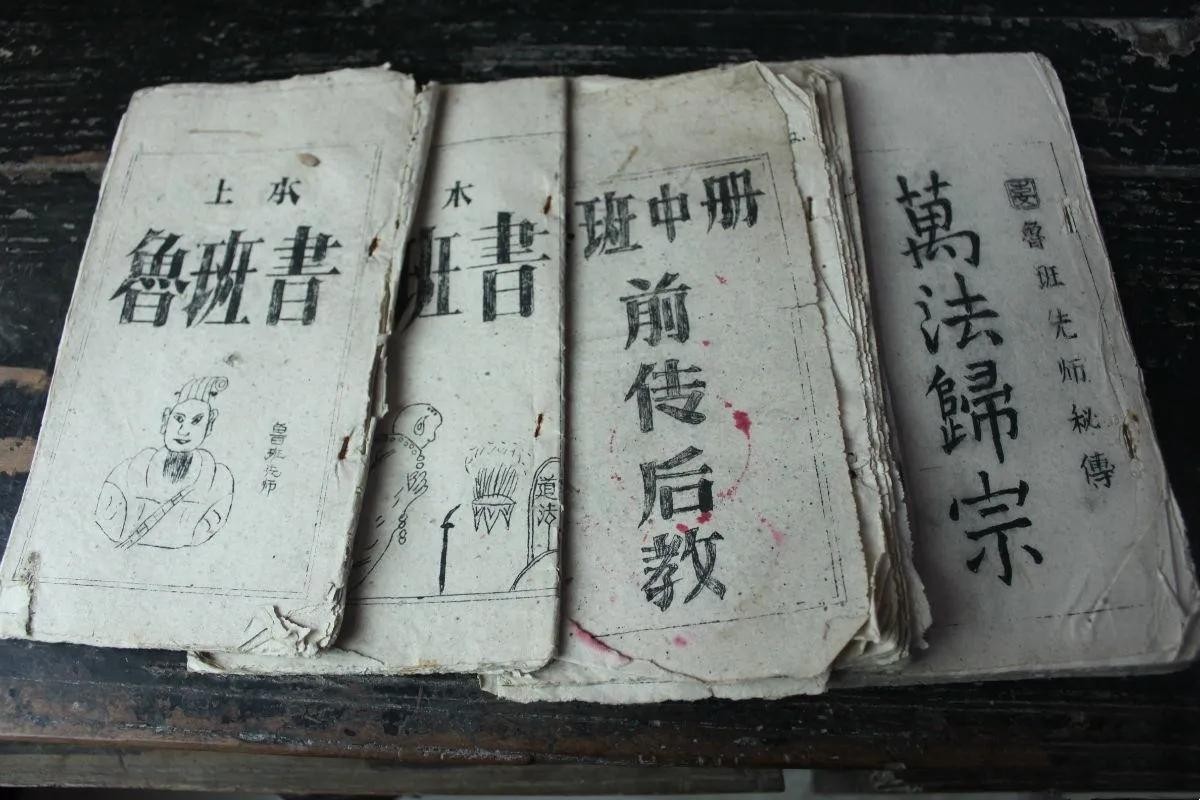 上
魯班書
魯班先师
木
班書
道法
班中册
前传后教
魯班先师秘傳
萬法歸宗